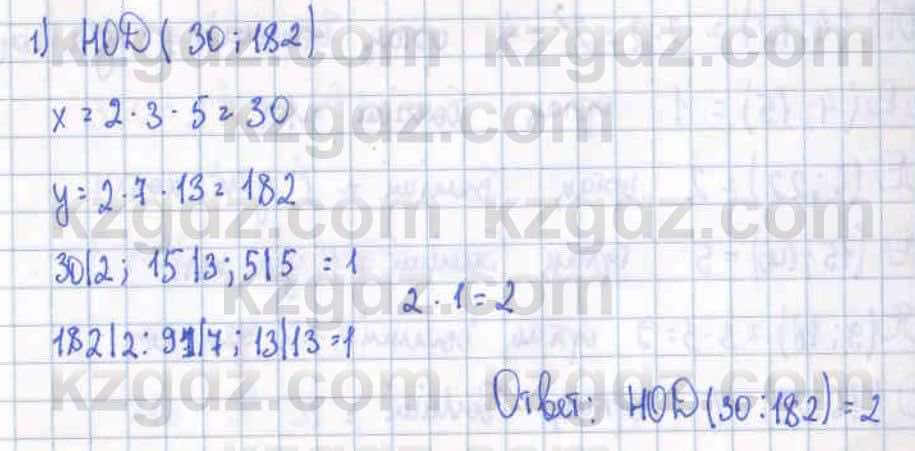 1) НОД ( 30 ; 182)
kzgdz.com kzgdz.com
x = 2 · 3 · 5 = 30
kzgdz.com kzgdz.com
y = 2 · 7 · 13 = 182
kzgdz.com kzgdz.com
30|2 ; 15|3 ; 5|5 = 1
kzgdz.com kzgdz.com
2 · 1 = 2
182|2 : 91|7 ; 13|13 = 1
kzgdz.com kzgdz.com
Ответ: НОД (30 : 182) = 2